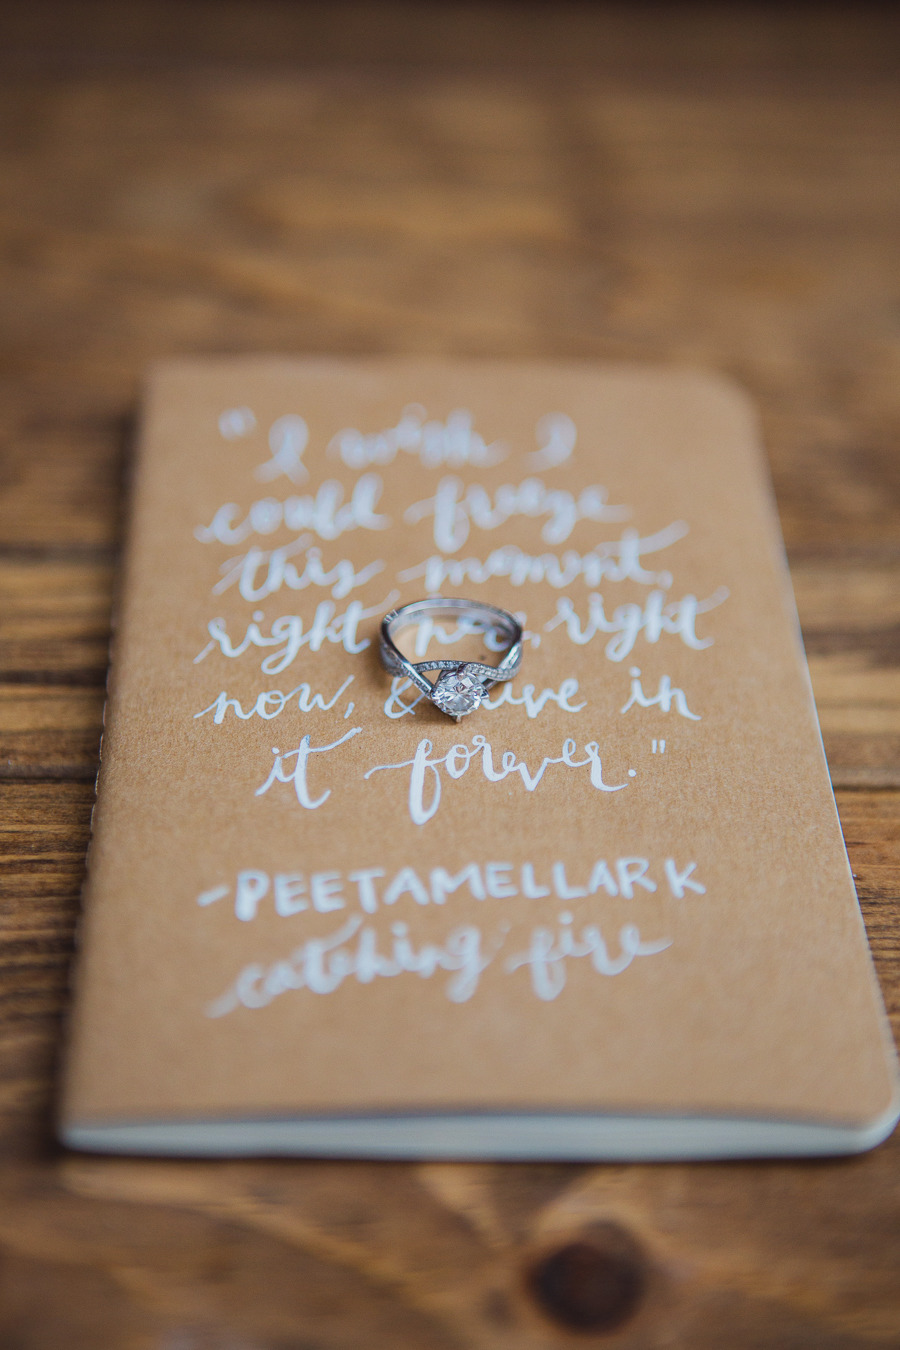 "I wish I
could freeze
this moment,
right here, right
now, & live in
it forever."
-PEETA MELLARK
catching fire